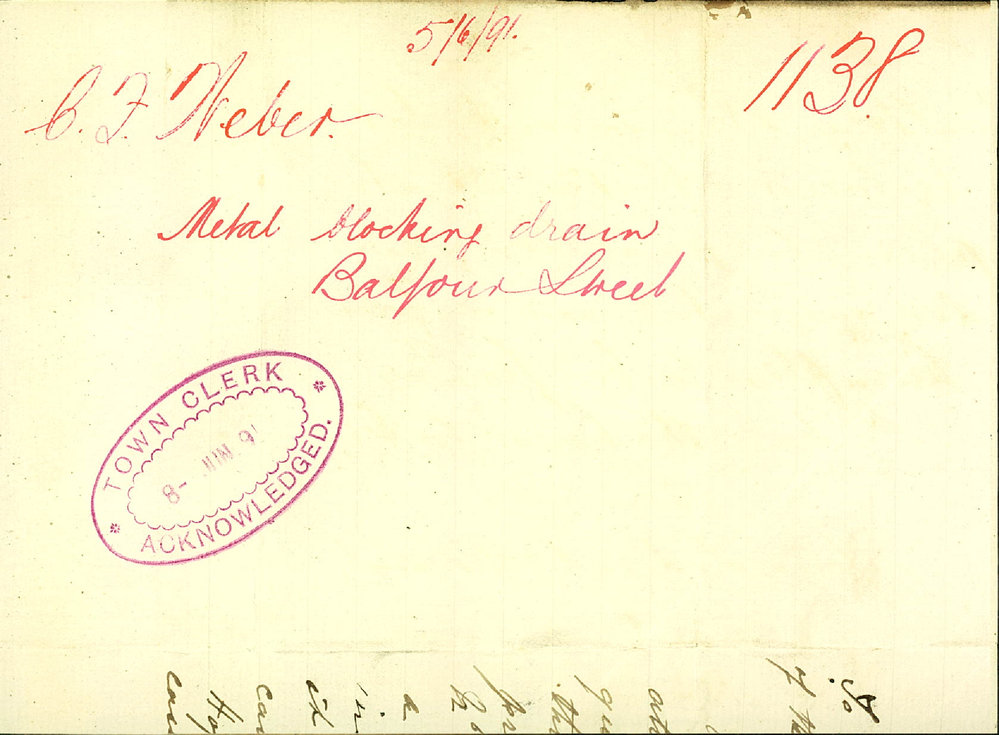 5/6/91.
1138.
C. F. Weber.
Metal blocking drain
Balfour Street
TOWN CLERK
8- JUN 91
ACKNOWLEDGED.